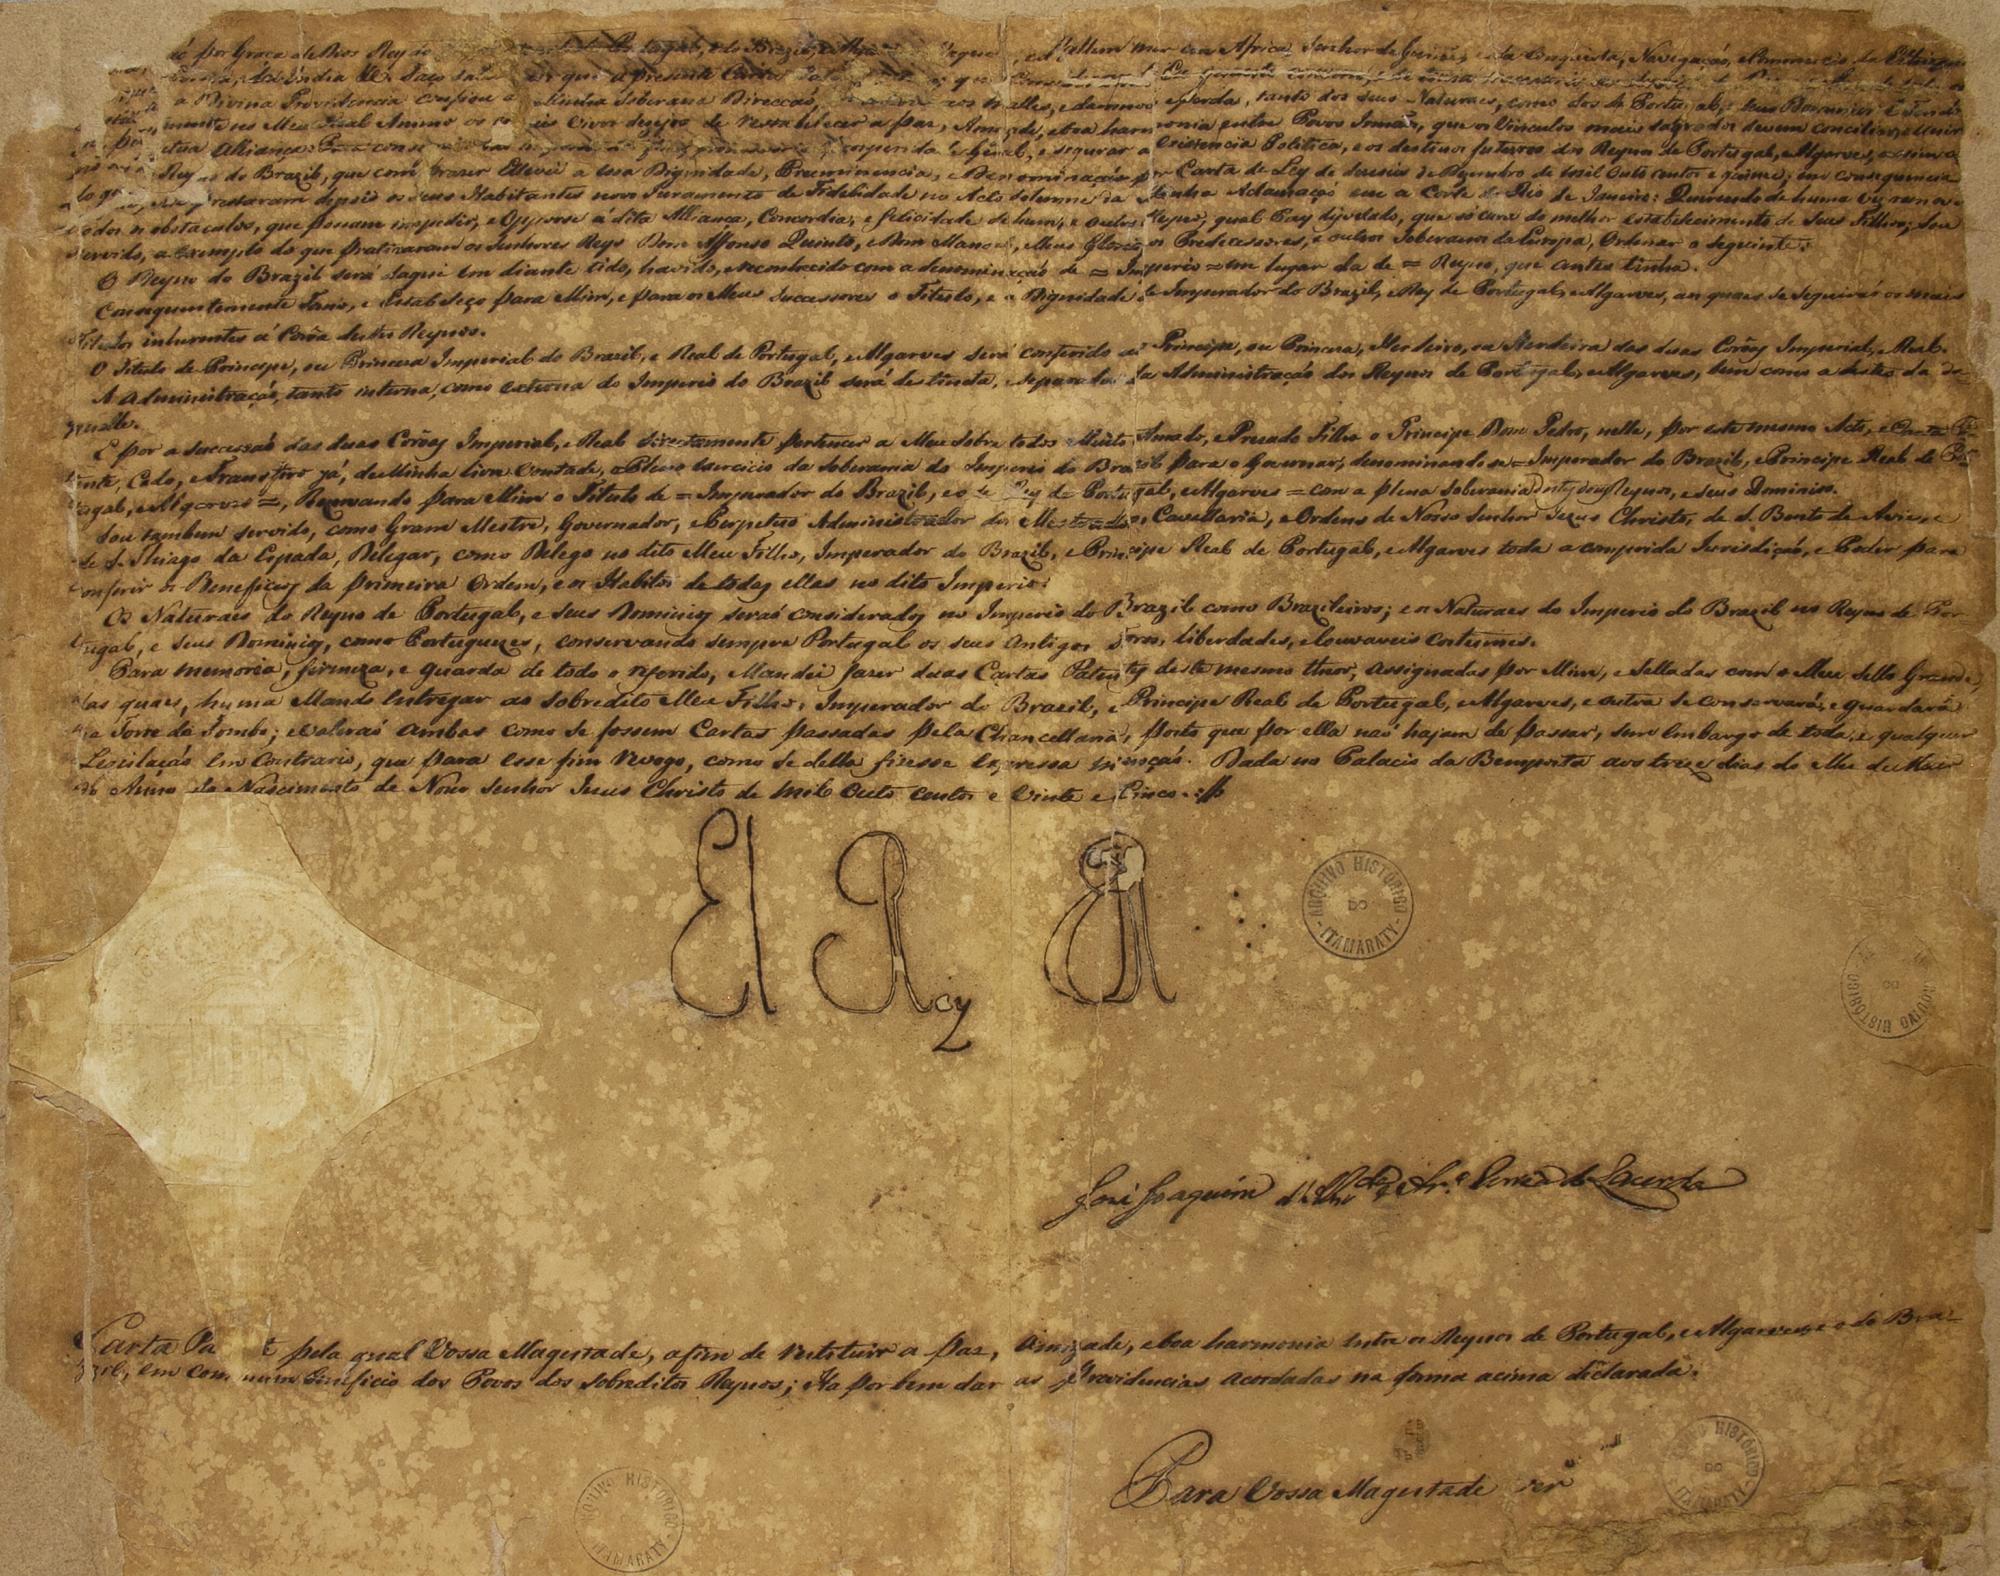 por Graça de Deos Rey do Portugal, e do Brazil, e Algarves d'aquem, e d'alem mar em Africa, Senhor de Guiné, e da Conquista, Navegação, e Commercio da Ethiopia
India &c. Faço saber que a presente Carta
a Divina Providencia confiou a Minha Soberana Direcção, males, e damnos e perda, tanto dos seus Naturaes, como dos de Portugal, e seus Dominios: E Tendo
no Meu Real Animo os mais vivos dezejos de restabelecer a paz, Amizade, e boa harmonia entre Povos Irmãos, que os Vinculos mais sagrados devem conciliar, e unir
Alliança: Para conseguir prosperidade Geral, e segurar a existencia Politica, e os destinos futuros dos Reynos de Portugal, e Algarves, assim
Reyno do Brazil, que com prazer Elevei a essa Dignidade, Preeminencia, e Denominação por Carta de Ley de dezeseis de Dezembro de mil Outo centos e quinze; em consequencia
prestaram depois os seus Habitantes novo Juramento de Fidelidade no Acto solemne da Minha Aclamação em a Corte do Rio de Janeiro: Querendo de huma vez remover
todos os obstaculos, que possam impedir, e Oppôr-se á dita Alliança, Concordia, e felicidade de hum, e outro Reyno, qual Pay disvelado, que só cura do melhor estabelecimento de Seus Filhos; Sou
servido, a exemplo do que praticaram os Senhores Reys Dom Affonso Quinto, e Dom Manoel, Meus Gloriosos Predecessores, e outros Soberanos da Europa, Ordenar o seguinte:
O Reyno do Brazil será daqui em diante tido, havido, e reconhecido com a denominação de = Imperio = em lugar da de = Reyno, que antes tinha.
Consequentemente Tomo, e Estabeleço para Mim, e para os Meus Successores o Titulo, e a Dignidade de Imperador do Brazil, e Rey de Portugal, e Algarves, aos quaes se seguirão os mais
Titulos inherentes á Corôa destes Reynos.
O Titulo de Principe, ou Princeza Imperial do Brazil, e Real de Portugal, e Algarves será conferido ao Principe, ou Princeza, Herdeiro, ou Herdeira das duas Corôas Imperial, e Real.
A Administração, tanto interna, como externa do Imperio do Brazil será destincta, e separada da Administração dos Reynos de Portugal, e Algarves, bem como a destes da da-
quelle.
E por a successão das duas Corôas Imperial, e Real directamente pertencer a Meu Sobre todos Muito Amado, e Prezado Filho o Principe Dom Pedro, nelle, por este mesmo Acto, e Carta Pa-
tente, Cedo, e Transfiro já, de Minha livre Vontade, o Pleno exercicio da Soberania do Imperio do Brazil para o Governar, denominando-se = Imperador do Brazil, e Principe Real de Por-
tugal, e Algarves =, Reservando para Mim o Titulo de = Imperador do Brazil, e o de Rey de Portugal, e Algarves = com a plena Soberania destes dous Reynos, e seus Dominios.
Sou tambem servido, como Gram Mestre, Governador, e Perpetuo Administrador dos Mestrados, Cavallaria, e Ordens de Nosso Senhor Jezus Christo, de S. Bento de Aviz, e
de S. Thiago da Espada, Delegar, como Delego no dito Meu Filho, Imperador do Brazil, e Principe Real de Portugal, e Algarves toda a comprida Jurisdição, e Poder para
conferir os Beneficios da primeira Ordem, e os Habitos de todas ellas no dito Imperio.
Os Naturaes do Reyno de Portugal, e seus Dominios serão considerados no Imperio do Brazil como Brazileiros; e os Naturaes do Imperio do Brazil no Reyno de Por-
tugal, e seus Dominios, como Portuguezes, conservando sempre Portugal os seus Antigos Foros, liberdades, e louvaveis costumes.
Para memoria, firmeza, e guarda de todo o referido, Mandei fazer duas Cartas Patentes deste mesmo theor, assignadas por Mim, e Selladas com o Meu Sello Grande;
das quaes, huma Mando entregar ao Sobredito Meu Filho, Imperador do Brazil, e Principe Real de Portugal, e Algarves, e outra se conservará, e guardará
na Torre do Tombo; e valerão ambas como se fossem Cartas passadas pela Chancellaria, posto que por ella não hajam de passar, sem embargo de toda, e qualquer
Legislação em Contrario, que para esse fim revogo, como se della fizesse expressa menção. Dada no Palacio da Bemposta aos treze dias do Mez de Maio
do Anno do Nascimento de Nosso Senhor Jezus Christo de mil Outo centos e Vinte e Cinco.
El Rey
ARCHIVO HISTORICO DO ITAMARATY
ARCHIVO HISTORICO DO
José Joaquim de Lacerda
Carta Pa te pela qual Vossa Magestade, afim de restituir a paz, Amizade, e boa harmonia entre os Reynos de Portugal, e Algarves e do Bra-
zil, em commum beneficio dos Povos dos sobreditos Reynos; Ha por bem dar as Providencias acordadas na forma acima declarada.
Para Vossa Magestade ver
ARCHIVO HISTORICO DO ITAMARATY
ARCHIVO HISTORICO ITAMARATY